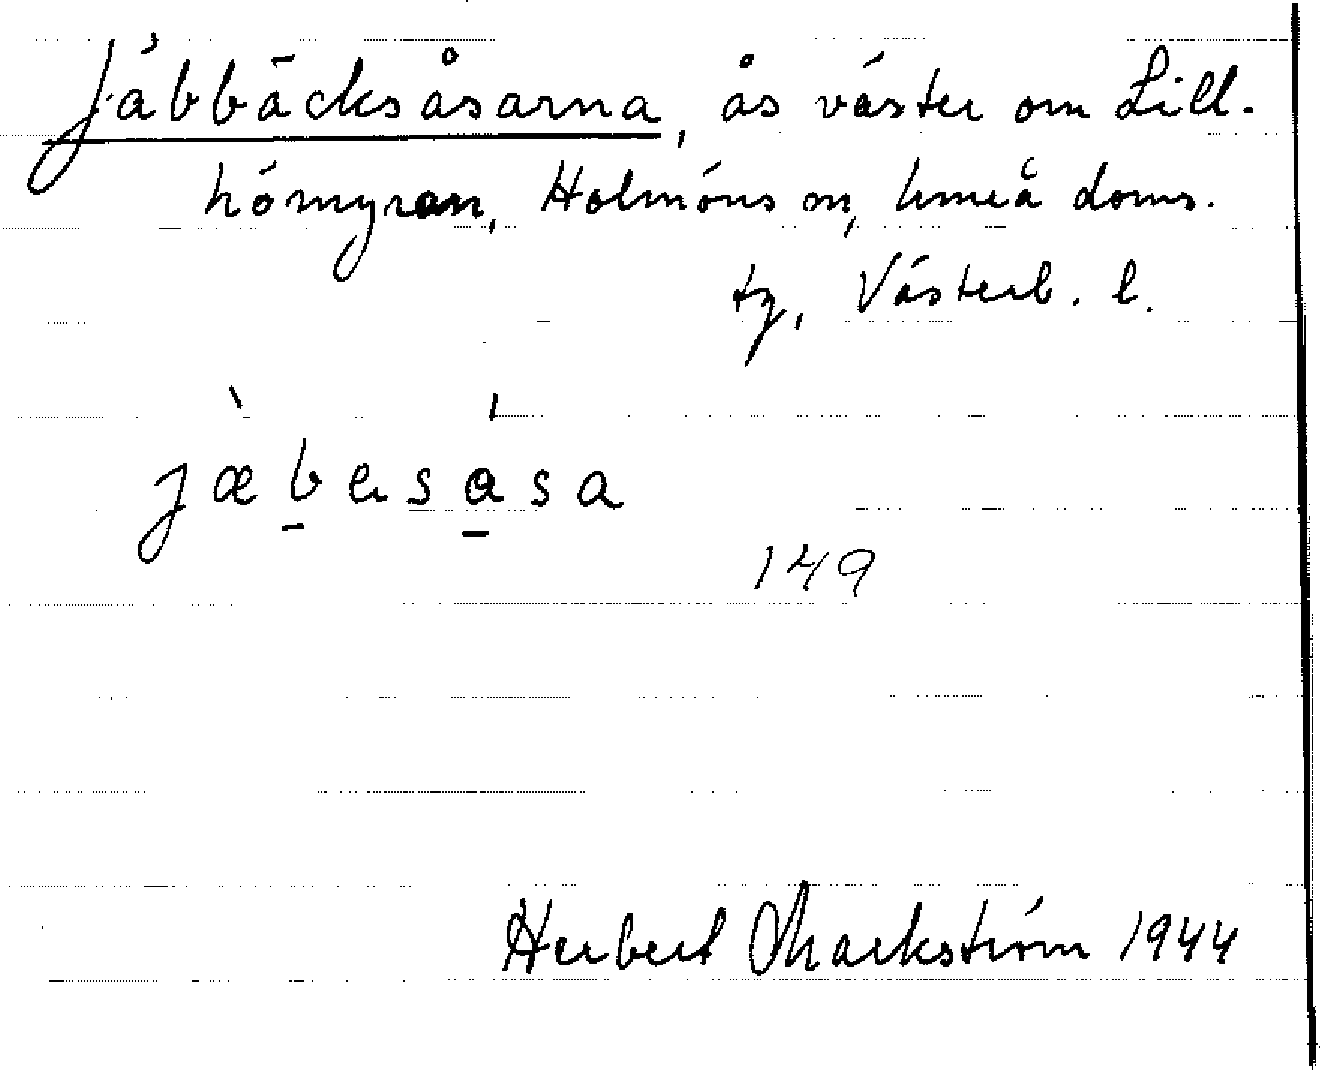 Jäbbäcksåsarna, ås väster om Lill-
hömyran, Holmöns sn, Umeå doms.
tg, Västerb. l.
jæbɐsasa
149
Herbert Markström 1944